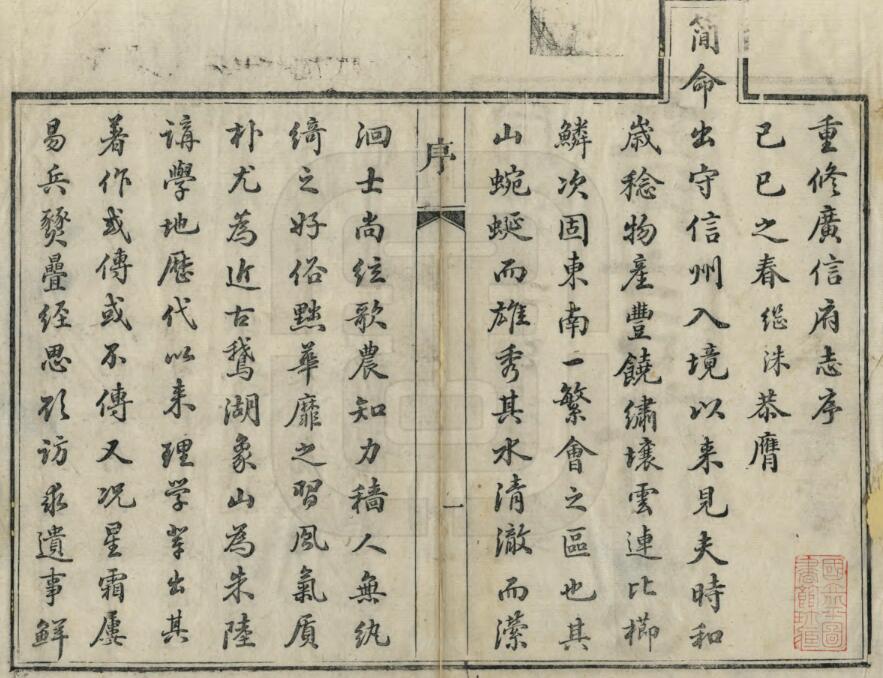 重修廣信府志序
己巳之春繼洙恭膺
簡命出守信州入境以来見夫時和
歲稔物產豐饒繡壤雲連比櫛
鱗次固東南一繁會之區也其
山蜿蜒而雄秀其水清澈而瀠
序
一
洄士尚絃歌農知力穡人無紈
綺之好俗黜華靡之習風氣质
朴尤為近古鵝湖象山為朱陸
講學地歷代以来理学輩出其
著作或傳或不傳又况星霜屢
易兵燹疊經思欲访求遺事鮮